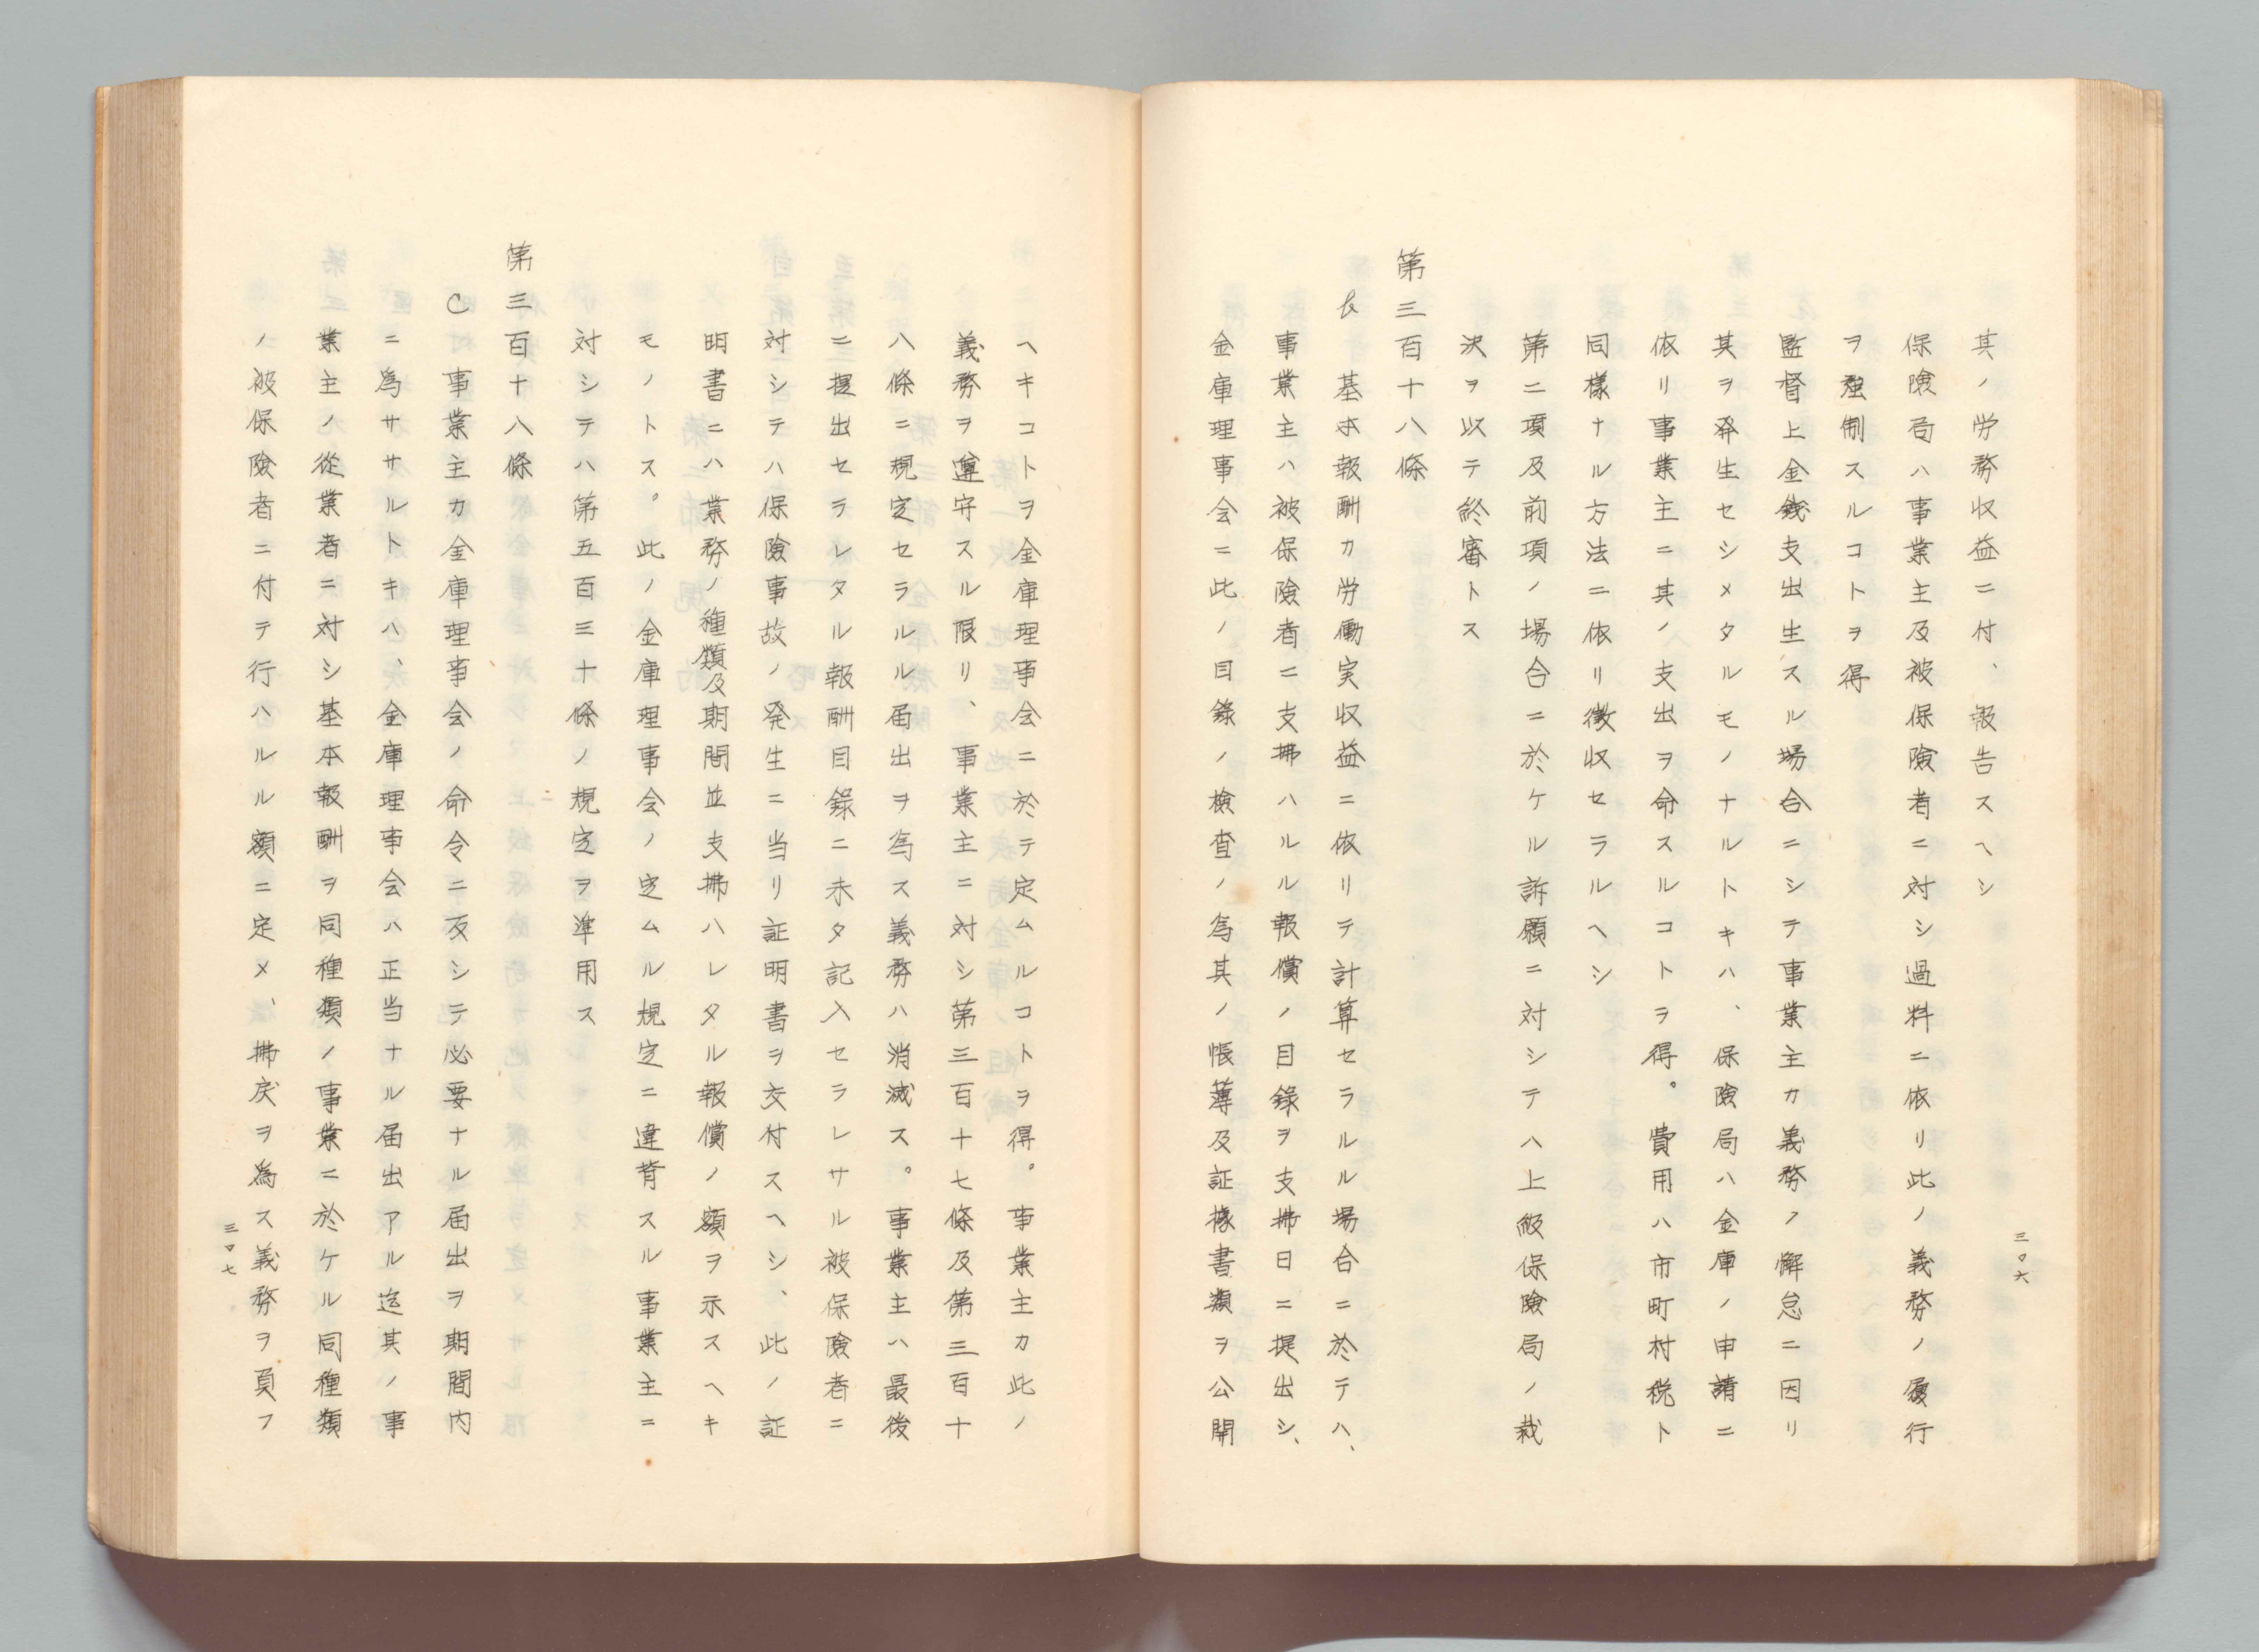 其ノ労務収益ニ付、報告スヘシ
保険局ハ事業主及被保険者ニ対シ過料ニ依リ此ノ義務ノ履行
ヲ強制スルコトヲ得
監督上金銭支出生スル場合ニシテ事業主カ義務ノ懈怠ニ因リ
其ヲ発生セシメタルモノナルトキハ、保険局ハ金庫ノ申請ニ
依リ事業主ニ其ノ支出ヲ命スルコトヲ得。費用ハ市町村税ト
同様ナル方法ニ依リ徴収セラルヘシ
第二項及前項ノ場合ニ於ケル訴願ニ対シテハ上級保険局ノ裁
決ヲ以テ終審トス
第三百十八條
b 基本報酬カ労働実収益ニ依リテ計算セラルル場合ニ於テハ、
事業主ハ被保険者ニ支拂ハルル報償ノ目錄ヲ支拂日ニ提出シ、
金庫理事会ニ此ノ目錄ノ検査ノ為其ノ帳薄及証據書類ヲ公開
三〇六
ヘキコトヲ金庫理事会ニ於テ定ムルコトヲ得。事業主カ此ノ
義務ヲ遵守スル限リ、事業主ニ対シ第三百十七條及第三百十
八條ニ規定セラルル届出ヲ為ス義務ハ消滅ス。事業主ハ最後
ニ提出セラレタル報酬目錄ニ未タ記入セラレサル被保険者ニ
対シテハ保険事故ノ発生ニ当リ証明書ヲ交付スヘシ、此ノ証
明書ニハ業務ノ種類及期間並支拂ハレタル報償ノ額ヲ示スヘキ
モノトス。此ノ金庫理事会ノ定ムル規定ニ違背スル事業主ニ
対シテハ第五百三十條ノ規定ヲ準用ス
第三百十八條
C 事業主カ金庫理事会ノ命令ニ反シテ必要ナル届出ヲ期間内
ニ為ササルトキハ、金庫理事会ハ正当ナル届出アル迄其ノ事
業主ノ從業者ニ対シ基本報酬ヲ同種類ノ事業ニ於ケル同種類
ノ被保険者ニ付テ行ハルル額ニ定メ、拂戻ヲ為ス義務ヲ負フ
三〇七